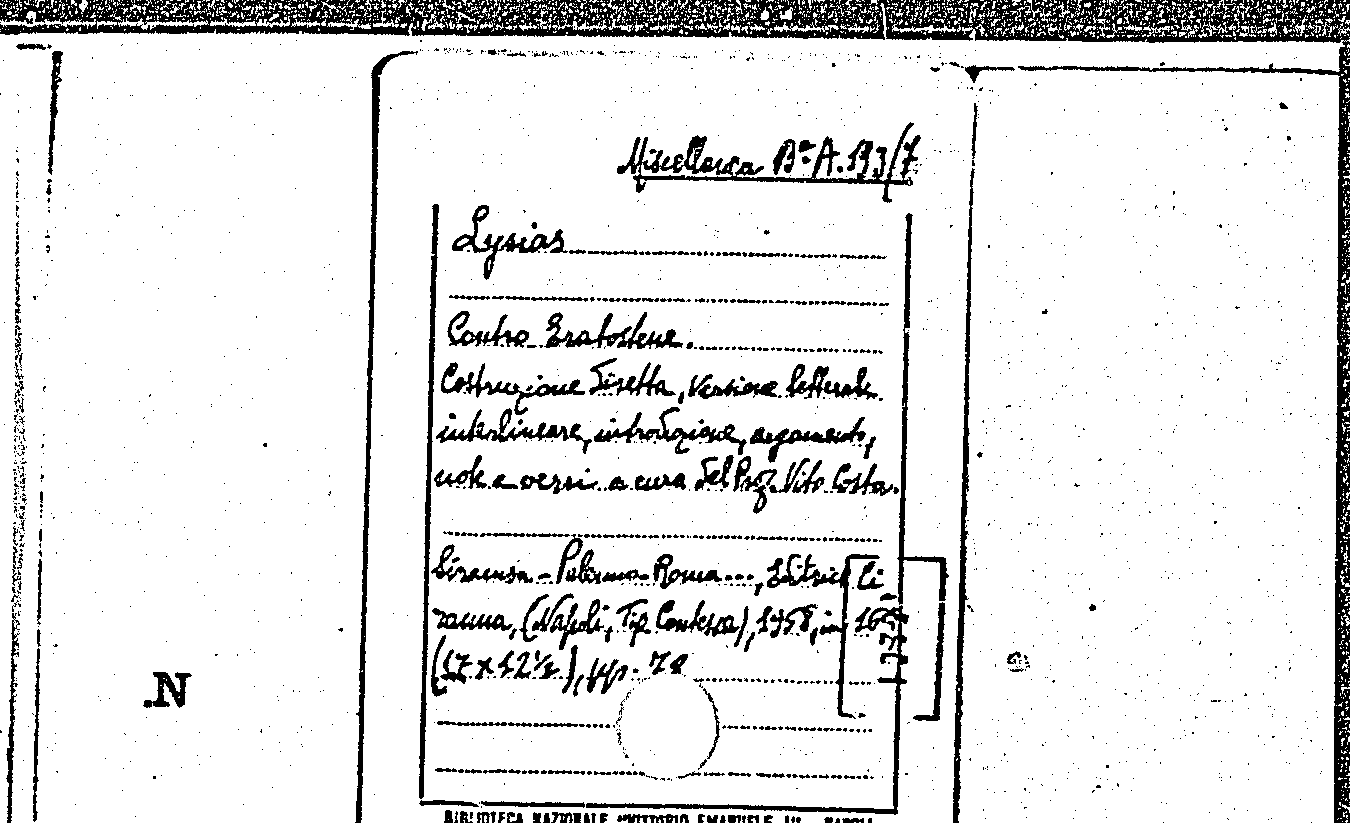 Miscellanea Bª A. 193/7
Lysias
Contro Eratostene.
Costruzione diretta, versione letterale
interlineare, introduzione, argomento,
note e versi a cura del Prof. Vito Costa.
Siracusa - Palermo - Roma..., Editrice Ci
ranna, (Napoli, Tip. Contessa), 1958, in 16º
(17 x 12½), pp. 72
.N
BIBLIOTECA NAZIONALE "VITTORIO EMANUELE III" - NAPOLI